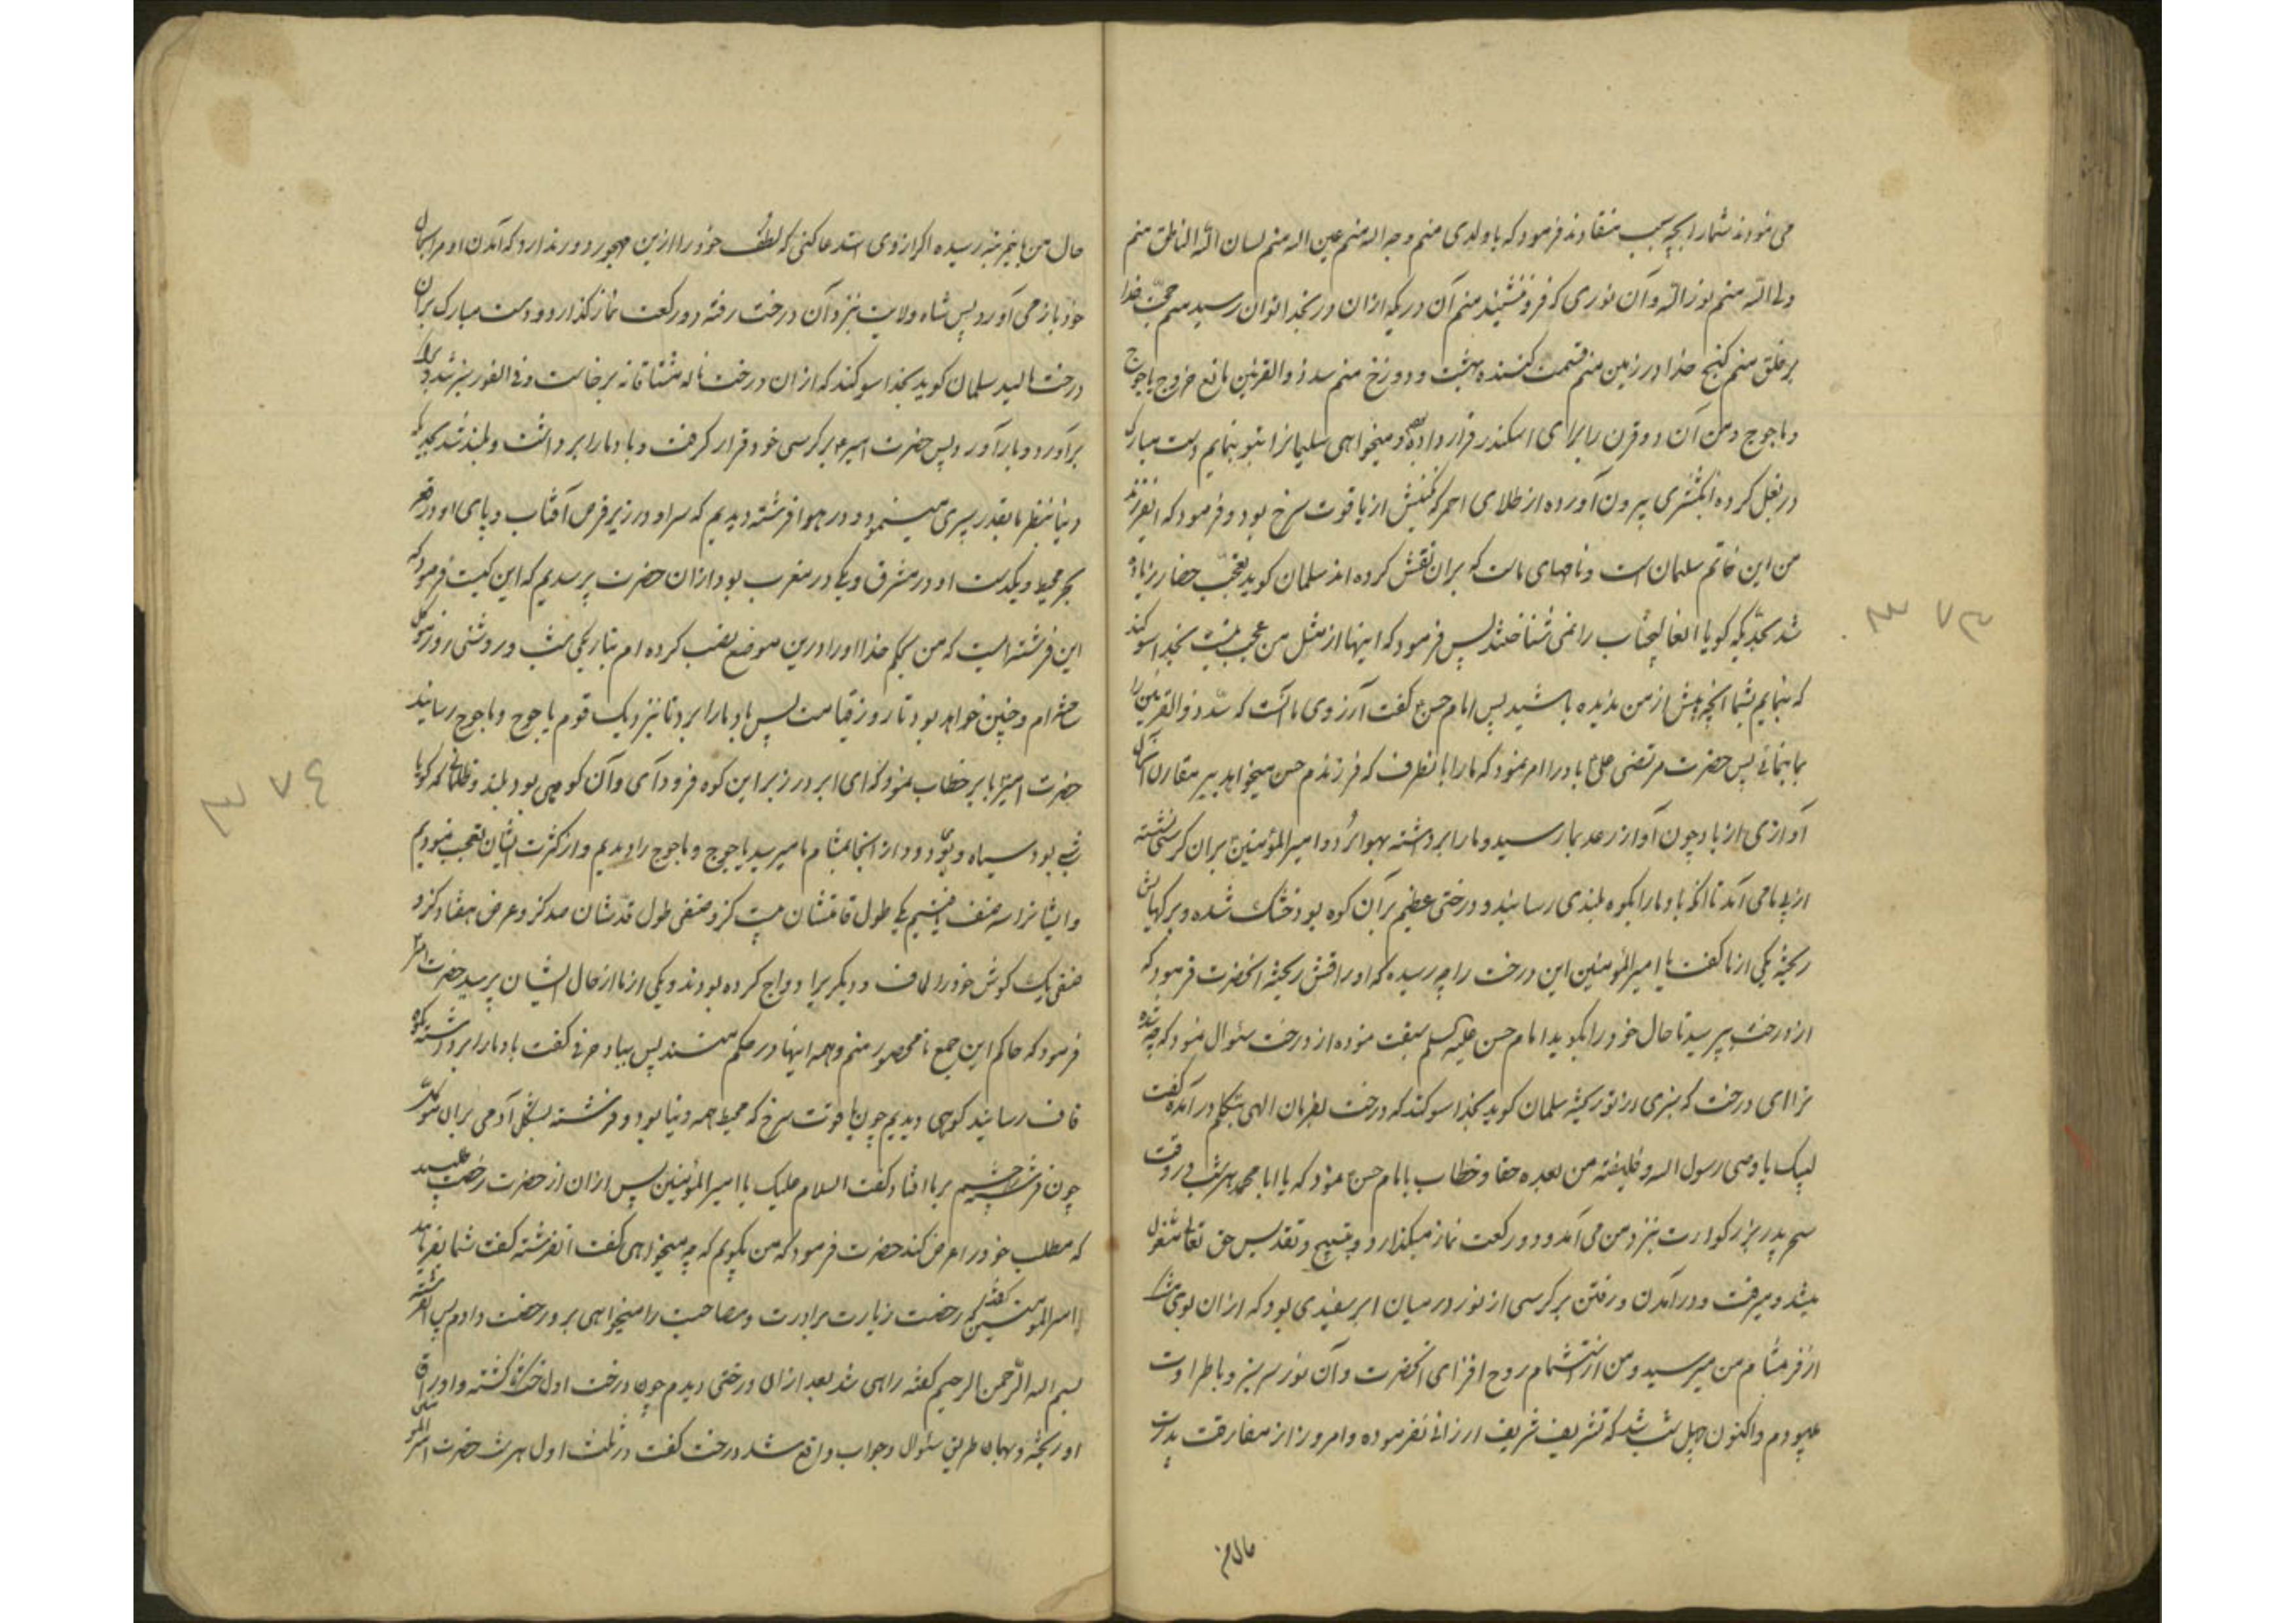 می نمودند شمارا بچه سبب منقادند فرمود که یا ولدی منم وجه اله منم عین اله منم لسان الله الناطق منم
ولی الله منم نور الله و آن نوری که فرو ننشیند منم آن دریکه ازان در بخدا توان رسید منم حجت خدا
بر خلق منم کنج خدا در زمین منم قسمت کننده بهشت و دوزخ منم سد ذوالقرنین مانع خروج یاجوج
و ماجوج و من آن دو قرن را برای اسکندر قرار داده و میخواهی سلیمانرا بتو بنمایم دست مبارک
در بغل کرده انکشتری بیرون آورده از طلای احمر که نکینش از یاقوت سرخ بود و فرمود که
من این خاتم سلیمان است و نامهای ماست که بران نقش کرده اند سلمان کوید تعجب حضار زیاده
شد بحدیکه کویا آنجناب را نمی شناختند پس فرمود که اینها از مثل من عجب نیست بخدا سوکند
که بنمایم بشما آنچه پیش از من ندیده باشید پس امام حسن کفت آرزوی ما آنست که سد ذوالقرنین را
بما بنمائی پس حضرت مرتضی علی باد را امر نمود که مارا بانطرف که فرزندم حسن میخواهد ببر مقارن آن
آوازی از باد چون آواز رعد بما رسید و مارا برداشته بهوا برد و امیرالمؤمنین بران کرسی نشسته
از پی ما می آمد تا آنکه باد مارا بکوه بلندی رسانید و درختی عظیم بر آن کوه بود خشک شده و برکهایش
ریخته یکی از ما کفت یا امیرالمؤمنین این درخت را چه رسیده که اوراقش ریخته آنحضرت فرمود که
از درخت بپرسید تا حال خود را بکوید امام حسن علیه السلم سبقت نموده از درخت سئوال نمود که چه شده
ترا ای درخت که سبزی از تو ریخته سلمان کوید بخدا سوکند که درخت بفرمان الهی بتکلم در آمده کفت
لبیک یا وصی رسول اله و خلیفته من بعده حقا و خطاب بامام حسن نمود که یا ابا محمد هر شب در وقت
سحر پدر بزرکوارت بنزد من می آمد و دو رکعت نماز میکذارد و بتسبیح و تقدیس حق تعالی مشغول
میشد و میرفت و در آمدن و رفتن بر کرسی از نور در میان ابر سفیدی بود که ازان بوی مشک
اذفر بمشام من میرسید و من از استشمام روح افزای آنحضرت و آن نور سرسبز و با طراوت
میبودم و اکنون چهل شب شد که تشریف شریف ارزانی نفرموده و امروز از مفارقت پدرت
حال من
٣٨٣
حال من باینمرتبه رسیده اکر ازوی استدعا کنی که لطف خود را ازین مهجور دور ندارد که آمدن او مرا بحال
خود باز می آورد پس شاه ولایت بنزد آن درخت رفته دو رکعت نماز کذارد و دست مبارک بران
درخت مالید سلمان کوید بخدا سوکند که ازان درخت ناله مشتاقانه برخاست و فی الفور سبز شد و برک
برآورد و بار آورد پس حضرت امیر بر کرسی خود قرار کرفت و باد مارا برداشت و بلند شد بحدیکه
دنیا بنظر ما بقدر سپری مینمود و در هوا فرشته دیدیم که سر او در زیر قرص آفتاب و پای او در قعر
بحر محیط و یکدست او در مشرق و یکی در مغرب بود ازان حضرت پرسیدیم که این کیست فرمود که
این فرشته ایست که من بحکم خدا او را درین موضع نصب کرده ام بتاریکی شب و روشنی روز موکل
ساخته ام و چنین خواهد بود تا روز قیامت پس باد مارا برد تا نزدیک قوم یاجوج و ماجوج رسانید
حضرت امیر با ابر خطاب نمود که ای ابر در زیر این کوه فرود آی و آن کوهی بود بلند و ظلمانی که کویا
شبی بود سیاه و بوی دود از آنجا بمشام ما میرسید یاجوج و ماجوج را دیدیم و از کثرت ایشان تعجب نمودیم
و ایشانرا سه صنف یافتیم یکی طول قامتشان بیست کز و صنفی طول قدشان صد کز و عرض هفتاد کز و
صنفی یک کوش خود را لحاف و دیکریرا دواج کرده بودند و یکی از ما از حال ایشان پرسید حضرت امیر
فرمود که حاکم این جمع نامحصور منم و همه اینها در حکم منند پس بباد حرفی کفت باد مارا برداشته بکوه
قاف رسانید کوهی دیدیم چون یاقوت سرخ که محیط همه دنیا بود و فرشته بشکل آدمی بران موکل
چون فرشته را چشم برما افتاد کفت السلام علیک یا امیرالمؤمنین پس ازان از حضرت رخصت طلبید
که مطلب خود را عرض کند حضرت فرمود که من بکویم که چه میخواهی کفت آنفرشته کفت شما بفرمائید
یا امیرالمؤمنین کفت که رخصت زیارت برادرت و مصاحبت را میخواهی برو رخصت دادم پس آنفرشته
بسم اله الرحمن الرحیم کفته راهی شد بعد ازان درختی دیدم چون درخت اول خشک کشته و اوراق
او ریخته و بهمان طریق سئوال و جواب واقع شد درخت کفت در ثلث اول هر شب حضرت امیرالمؤمنین
٣٨٤